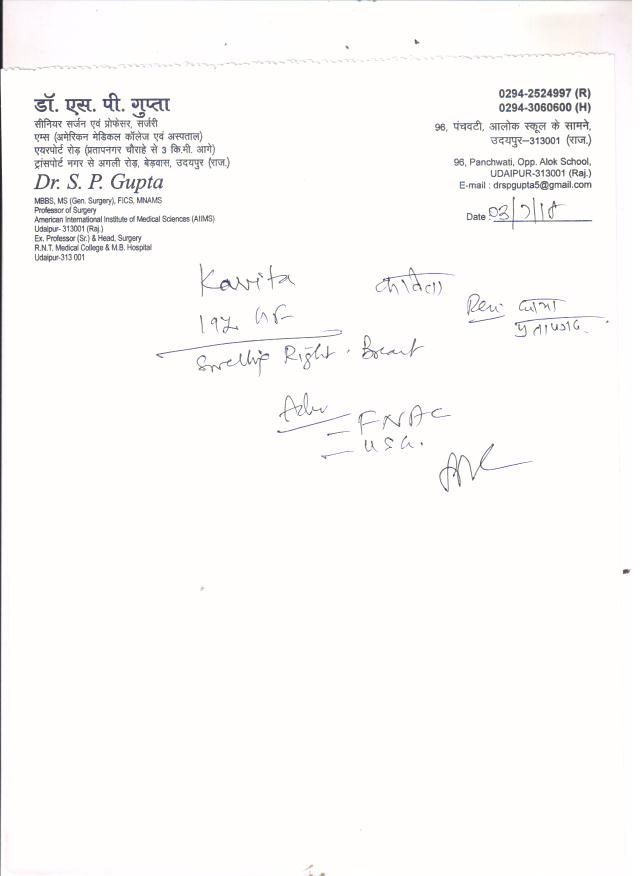 डॉ. एस. पी. गुप्ता
सीनियर सर्जन एवं प्रोफेसर, सर्जरी
एम्स (अमेरिकन मेडिकल कॉलेज एवं अस्पताल)
एयरपोर्ट रोड़ (प्रतापनगर चौराहे से 3 कि.मी. आगे)
ट्रांसपोर्ट नगर से अगली रोड़, बेड़वास, उदयपुर (राज.)
Dr. S. P. Gupta
MBBS, MS (Gen. Surgery), FICS, MNAMS
Professor of Surgery
American International Institute of Medical Sciences (AIIMS)
Udaipur- 313001 (Raj.)
Ex. Professor (Sr.) & Head, Surgery
R.N.T. Medical College & M.B. Hospital
Udaipur-313 001
0294-2524997 (R)
0294-3060600 (H)
96, पंचवटी, आलोक स्कूल के सामने,
उदयपुर-313001 (राज.)
96, Panchwati, Opp. Alok School,
UDAIPUR-313001 (Raj.)
E-mail : drspgupta5@gmail.com
Date 03/7/18
Kavita कविता
19y
Swelling Right Breast
Adv
FNAC
USG.